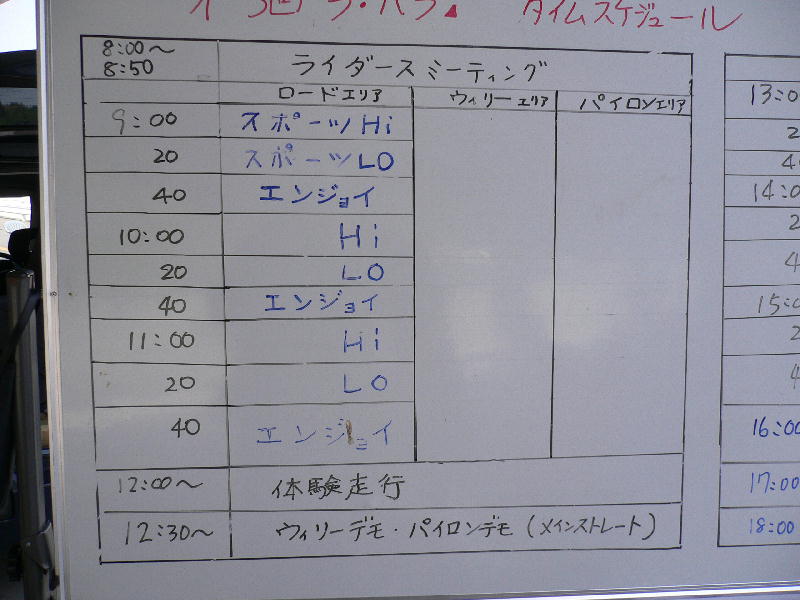 タイムスケジュール
8:00〜
8:50
ライダースミーティング
ロードエリア ウィリーエリア パイロンエリア
9:00 スポーツHi
20 スポーツLO
40 エンジョイ
10:00 Hi
20 LO
40 エンジョイ
11:00 Hi
20 LO
40 エンジョイ
12:00〜 体験走行
12:30〜 ウィリーデモ・パイロンデモ(メインストレート)
14:0
15:0
16:00
17:00
18:00